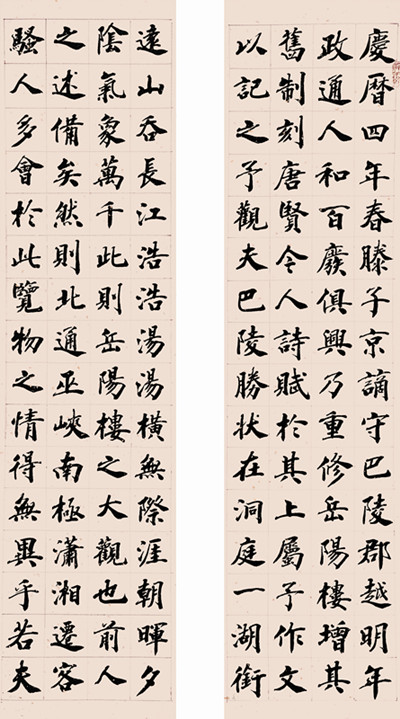 慶曆四年春滕子京謫守巴陵郡越明年
政通人和百廢俱興乃重修岳陽樓增其
舊制刻唐賢今人詩賦於其上屬予作文
以記之予觀夫巴陵勝狀在洞庭一湖銜
遠山吞長江浩浩湯湯橫無際涯朝暉夕
陰氣象萬千此則岳陽樓之大觀也前人
之述備矣然則北通巫峽南極瀟湘遷客
騷人多會於此覽物之情得無異乎若夫